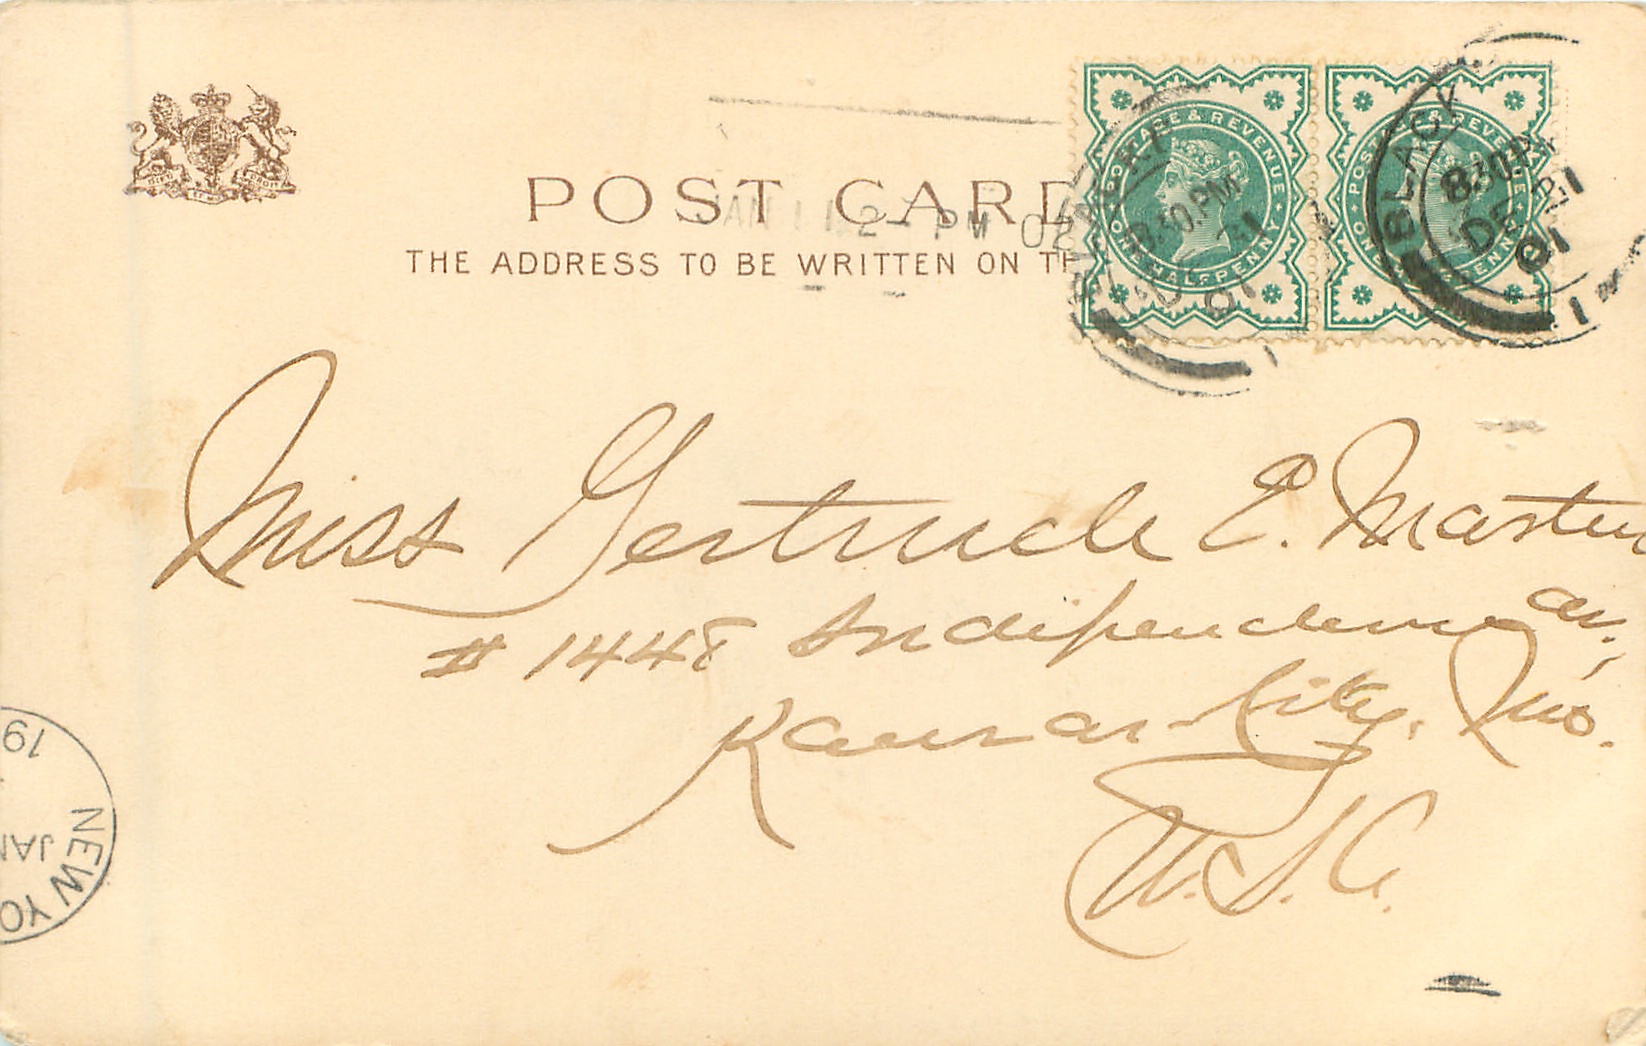 POST CARD
THE ADDRESS TO BE WRITTEN ON TH
JAN 11 2 - PM 02
POSTAGE & REVENUE
ONE HALFPENNY
8.30.PM
31
01
POSTAGE & REVENUE
ONE HALFPENNY
BLACK
8.30.PM
DE 31
01
1
Miss Gertrude E. Martin
# 1448 Independence Av,
Kansas City, Mo.
U.S.A.
NEW YO
JAN
19